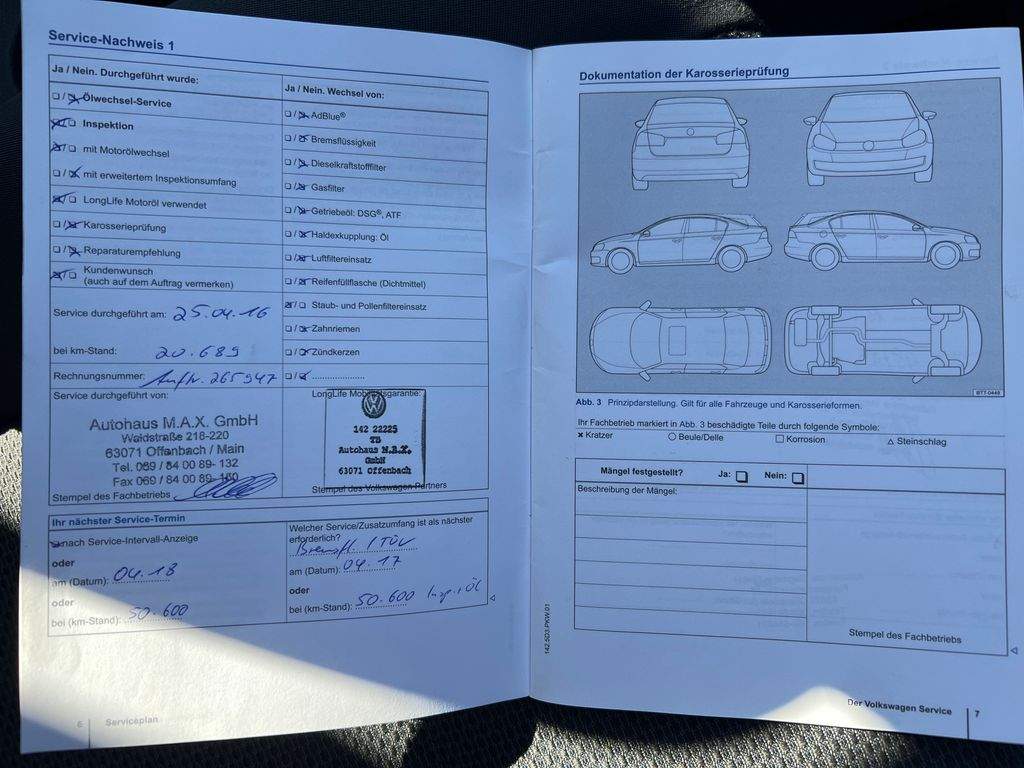 Service-Nachweis 1
Ja / Nein. Durchgeführt wurde:
Ölwechsel-Service
Inspektion
mit Motorölwechsel
mit erweitertem Inspektionsumfang
LongLife Motoröl verwendet
Karosserieprüfung
Reparaturempfehlung
Kundenwunsch
(auch auf dem Auftrag vermerken)
Service durchgeführt am: 25.04.16
bei km-Stand: 20.689
Rechnungsnummer: Auftr. 265947
Service durchgeführt von:
Autohaus M.A.X. GmbH
Waldstraße 218-220
63071 Offenbach / Main
Tel. 069 / 84 00 89- 132
Fax 069 / 84 00 89-
Stempel des Fachbetriebs
Ja / Nein. Wechsel von:
AdBlue®
Bremsflüssigkeit
Dieselkraftstofffilter
Gasfilter
Getriebeöl: DSG®, ATF
Haldexkupplung: Öl
Luftfiltereinsatz
Reifenfüllflasche (Dichtmittel)
Staub- und Pollenfiltereinsatz
Zahnriemen
Zündkerzen
LongLife Mobilitätsgarantie:
142 22225
TB
Autohaus M.A.X.
GmbH
63071 Offenbach
Stempel des Volkswagen Partners
Ihr nächster Service-Termin
nach Service-Intervall-Anzeige
oder
am (Datum): 04.18
oder
bei (km-Stand): 50.600
Welcher Service/Zusatzumfang ist als nächster
erforderlich?
Bremsfl. / TÜV
am (Datum): 04.17
oder
bei (km-Stand): 50.600 Insp. + Öl
6 Serviceplan
Dokumentation der Karosserieprüfung
BTT-0449
Abb. 3 Prinzipdarstellung. Gilt für alle Fahrzeuge und Karosserieformen.
Ihr Fachbetrieb markiert in Abb. 3 beschädigte Teile durch folgende Symbole:
× Kratzer ○ Beule/Delle □ Korrosion △ Steinschlag
Mängel festgestellt? Ja: Nein:
Beschreibung der Mängel:
Stempel des Fachbetriebs
142.5D3.PKW.01
Der Volkswagen Service 7